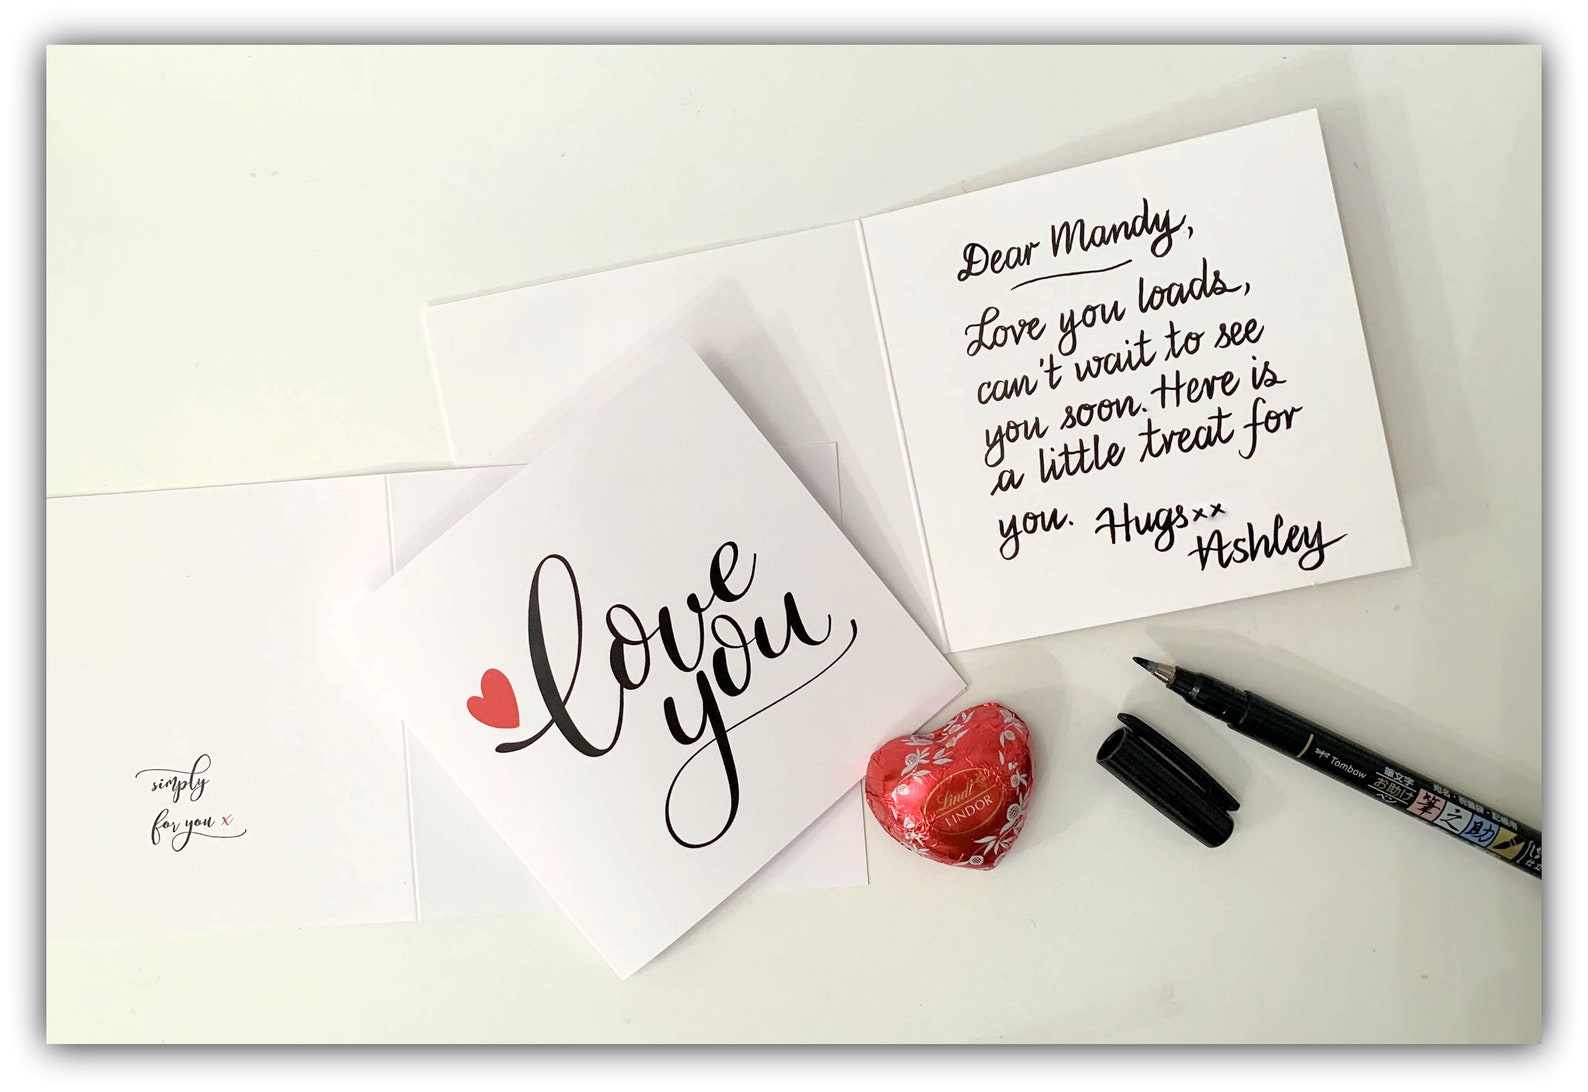 Dear Mandy,
Love you loads,
can't wait to see
you soon. Here is
a little treat for
you. Hugs xx
Ashley
love
you
simply
for you x
Lindt
LINDOR
Tombow
筆文字
お助け
ペン
筆之助